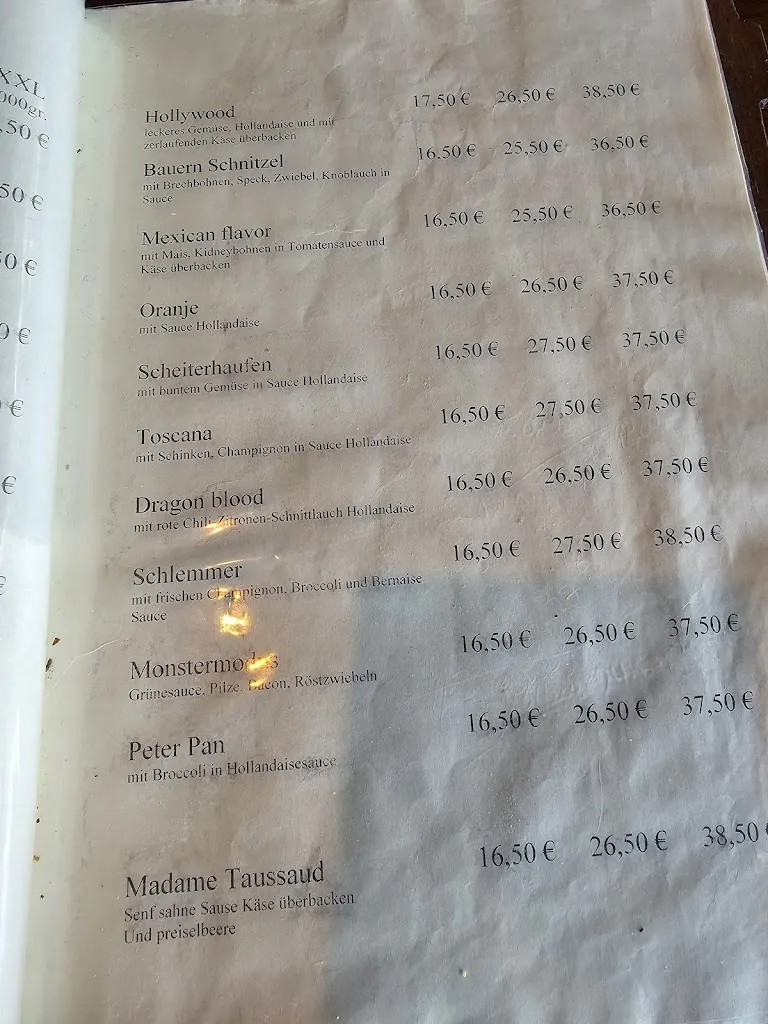 XXL
000gr.
,50 €
50 €
50 €
0 €
€
€
€
Hollywood 17,50 € 26,50 € 38,50 €
leckeres Gemüse, Hollandaise und mit
zerlaufenden Käse überbacken
Bauern Schnitzel 16,50 € 25,50 € 36,50 €
mit Brechbohnen, Speck, Zwiebel, Knoblauch in
Sauce
Mexican flavor 16,50 € 25,50 € 36,50 €
mit Mais, Kidneybohnen in Tomatensauce und
Käse überbacken
Oranje 16,50 € 26,50 € 37,50 €
mit Sauce Hollandaise
Scheiterhaufen 16,50 € 27,50 € 37,50 €
mit buntem Gemüse in Sauce Hollandaise
Toscana 16,50 € 27,50 € 37,50 €
mit Schinken, Champignon in Sauce Hollandaise
Dragon blood 16,50 € 26,50 € 37,50 €
mit rote Chili-Zitronen-Schnittlauch Hollandaise
Schlemmer 16,50 € 27,50 € 38,50 €
mit frischen Champignon, Broccoli und Bernaise
Sauce
16,50 € 26,50 € 37,50 €
Grünesauce, Pilze, Bacon, Röstzwiebeln
Peter Pan 16,50 € 26,50 € 37,50 €
mit Broccoli in Hollandaisesauce
Madame Taussaud 16,50 € 26,50 € 38,50 €
Senf sahne Sause Käse überbacken
Und preiselbeere